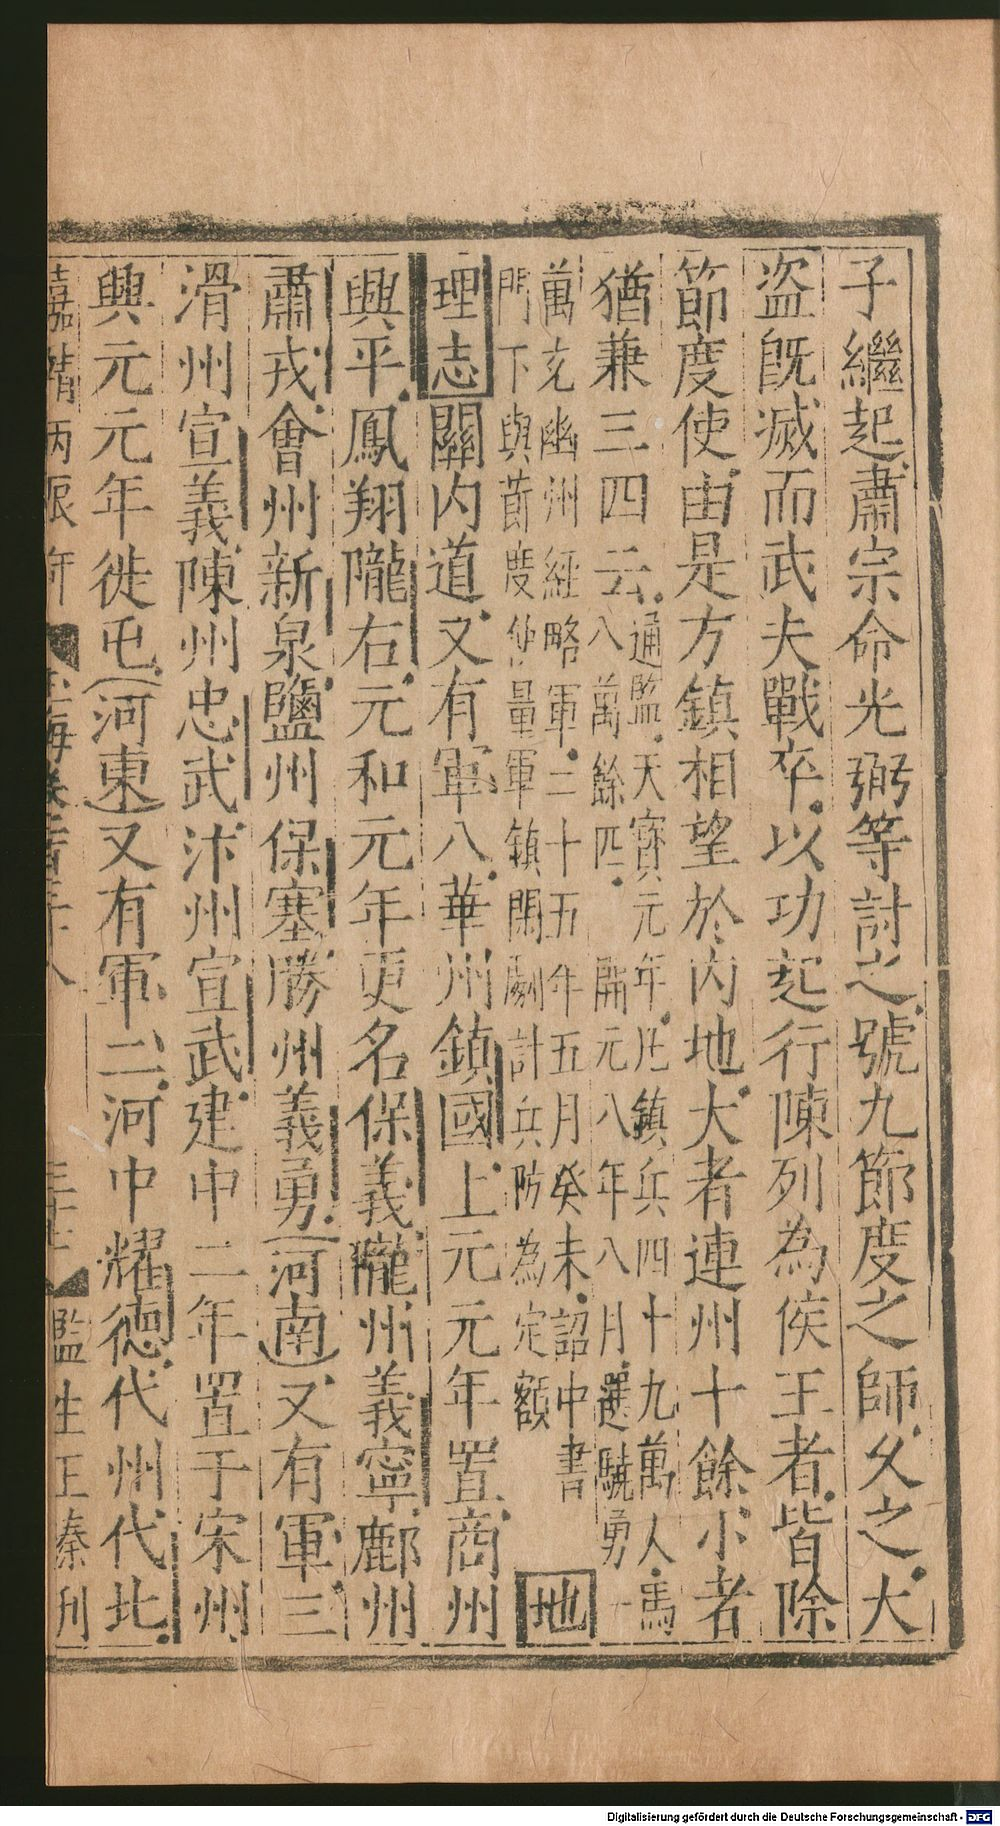 子繼起肅宗命光弼等討之號九節度之師久之大
盜既滅而武夫戰卒以功起行陳列為侯王者皆除
節度使由是方鎮相望於內地大者連州十餘小者
猶兼三四云通監天寶元年凡鎮兵四十九萬人馬
八萬餘匹開元八年八月選驍勇一
萬充幽州經略軍三十五年五月癸未詔中書
門下與節度使量軍鎮閑劇計兵防為定額地
理志關內道又有軍八華州鎮國上元元年置商州
興平鳳翔隴右元和元年更名保義隴州義寧鄜州
肅戎會州新泉鹽州保塞勝州義勇河南又有軍三
滑州宣義陳州忠武汴州宣武建中二年置于宋州
興元元年徙屯河東又有軍二河中耀德代州代北
嘉靖丙辰年 玉海卷 三十八 監生王秦刊
Digitalisierung gefördert durch die Deutsche Forschungsgemeinschaft - DFG